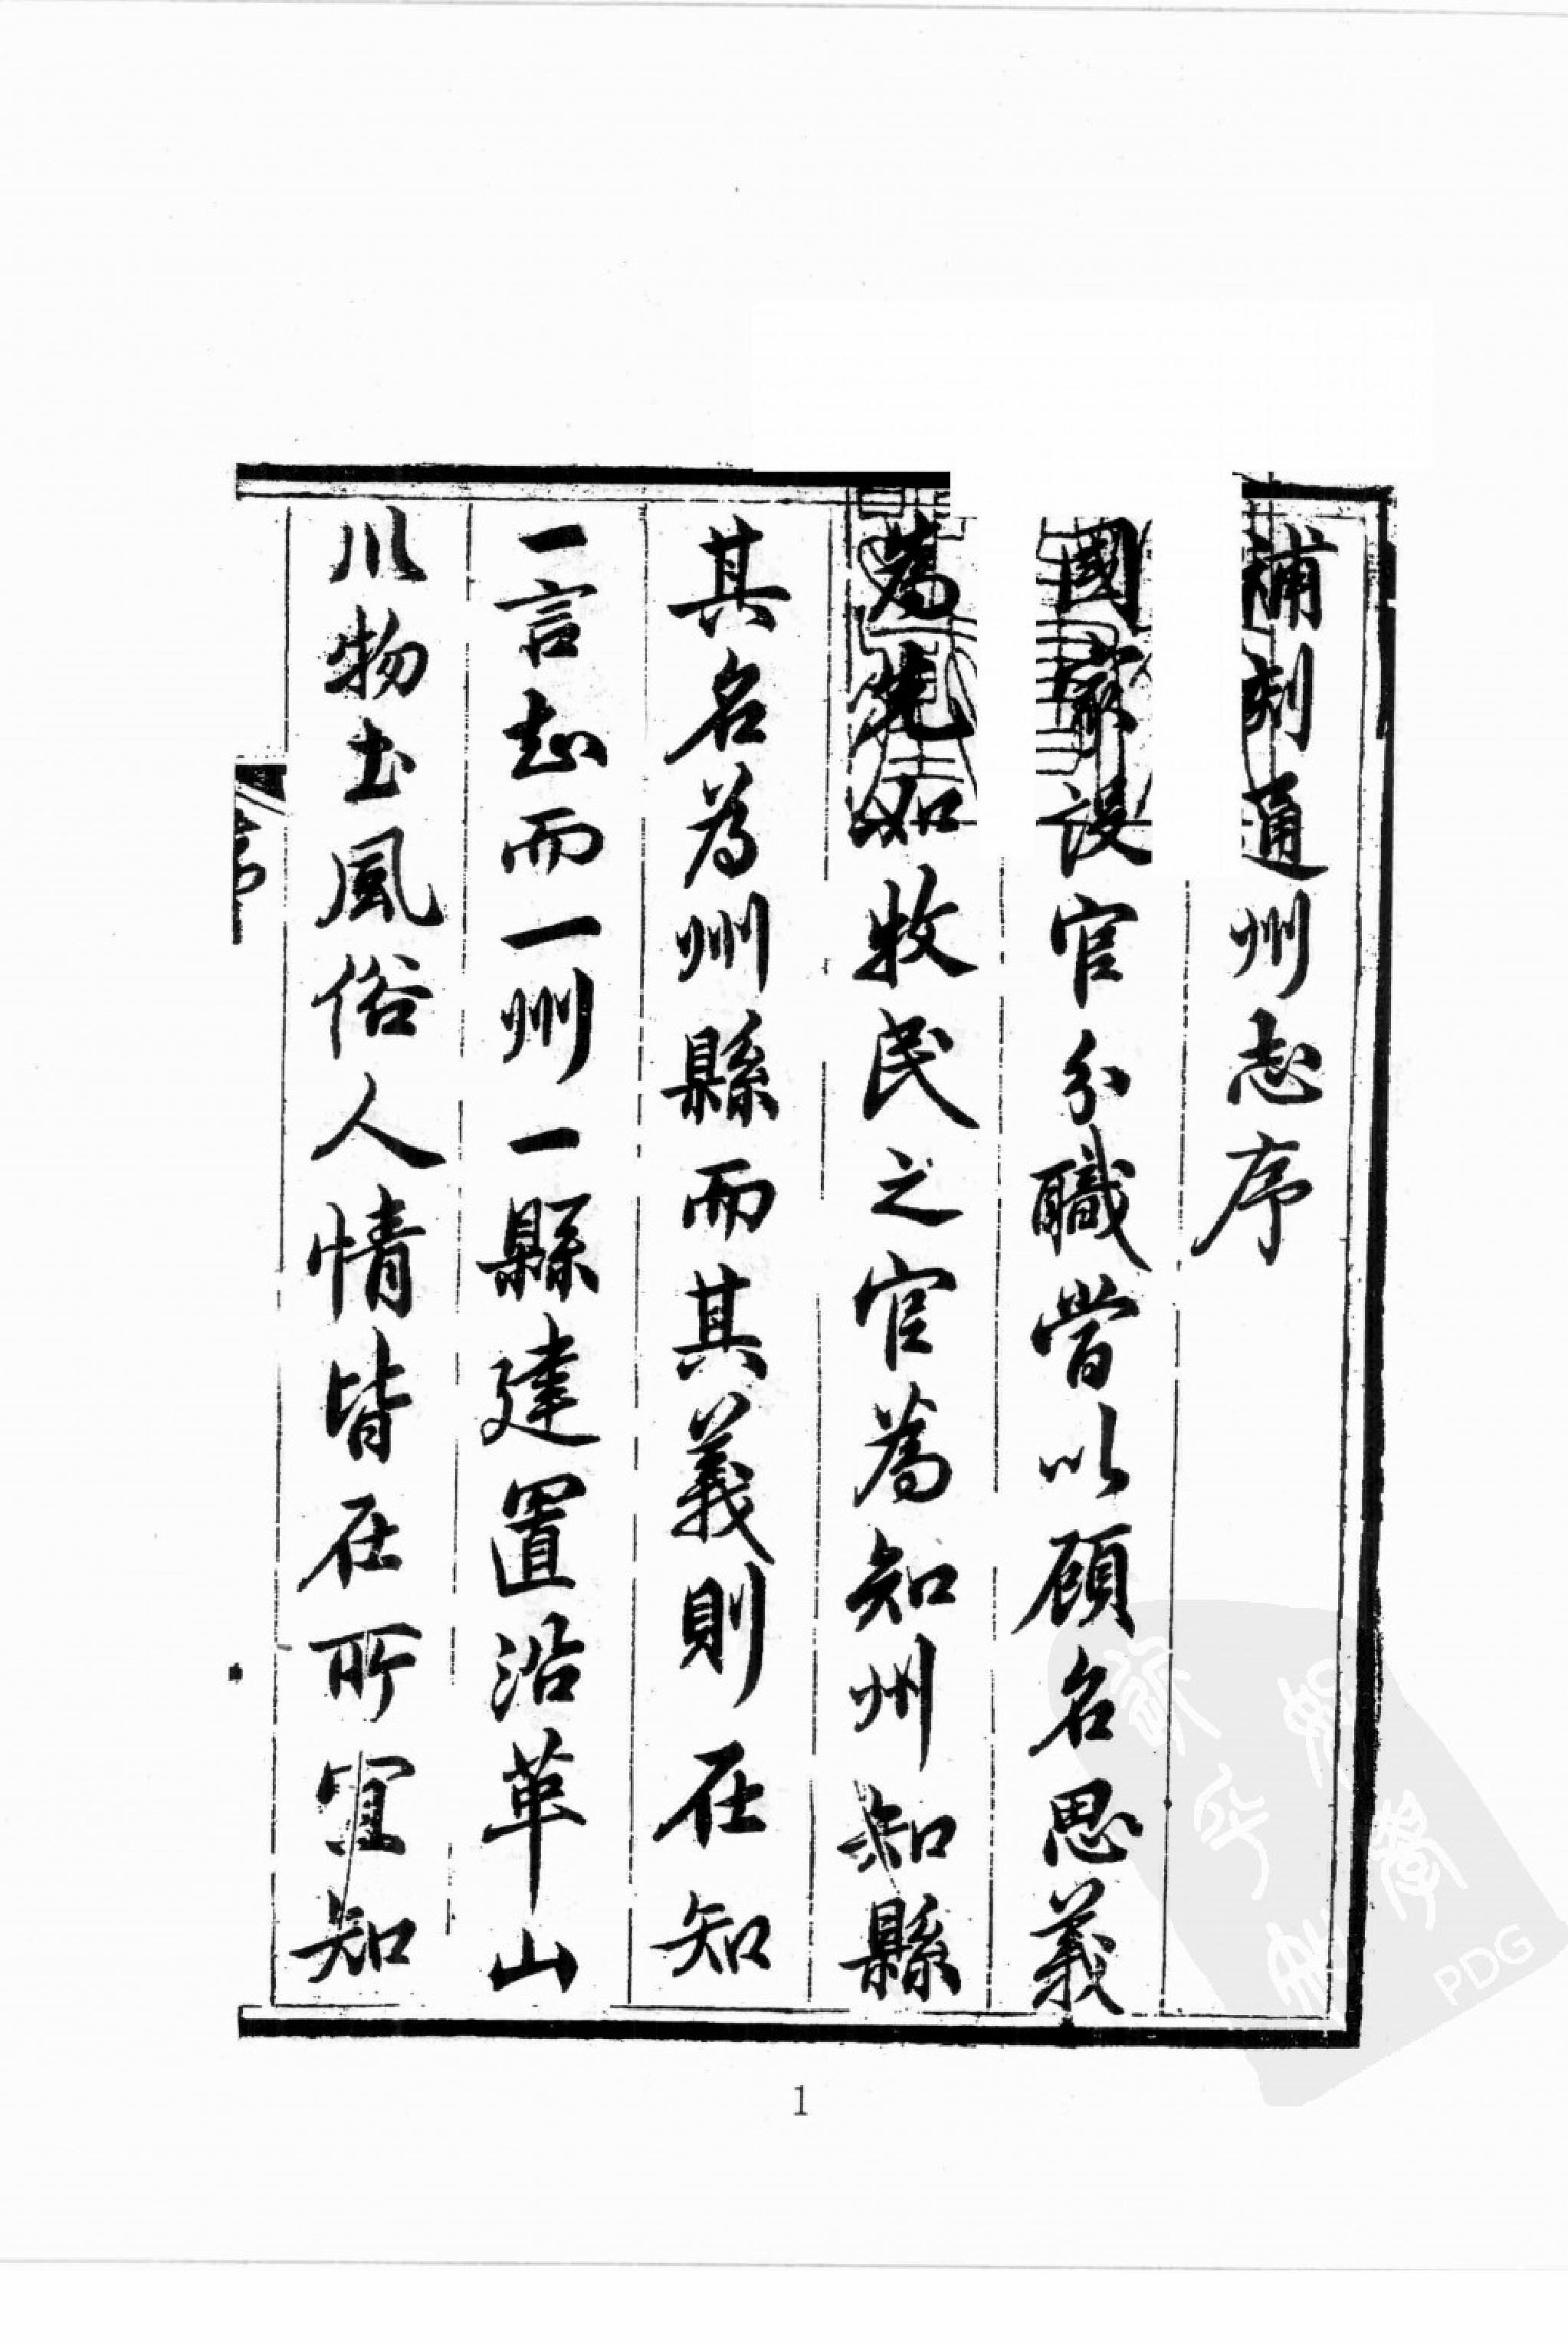 補刻通州志序
國家設官分職當以顧名思義
為先如牧民之官為知州知縣
其名為州縣而其義則在知
一言志而一州一縣建置沿革山
川物土風俗人情皆在所宜知
序
1
PDG